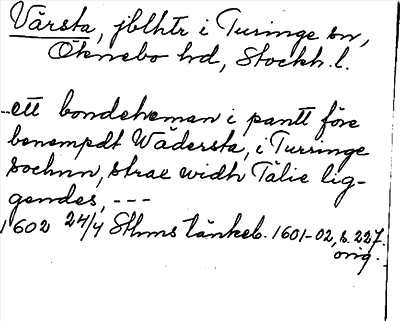 Vårsta, jblhtr i Turinge sn,
Öknebo hd, Stockh. l.
--ett bondeheman i pantt före
benempdt Wådersta, i Turringe
sochnn, strax widh Tälie lig-
gendes, ---
1602 24/4 Sthms tänkeb. 1601-02, s. 227.
orig.